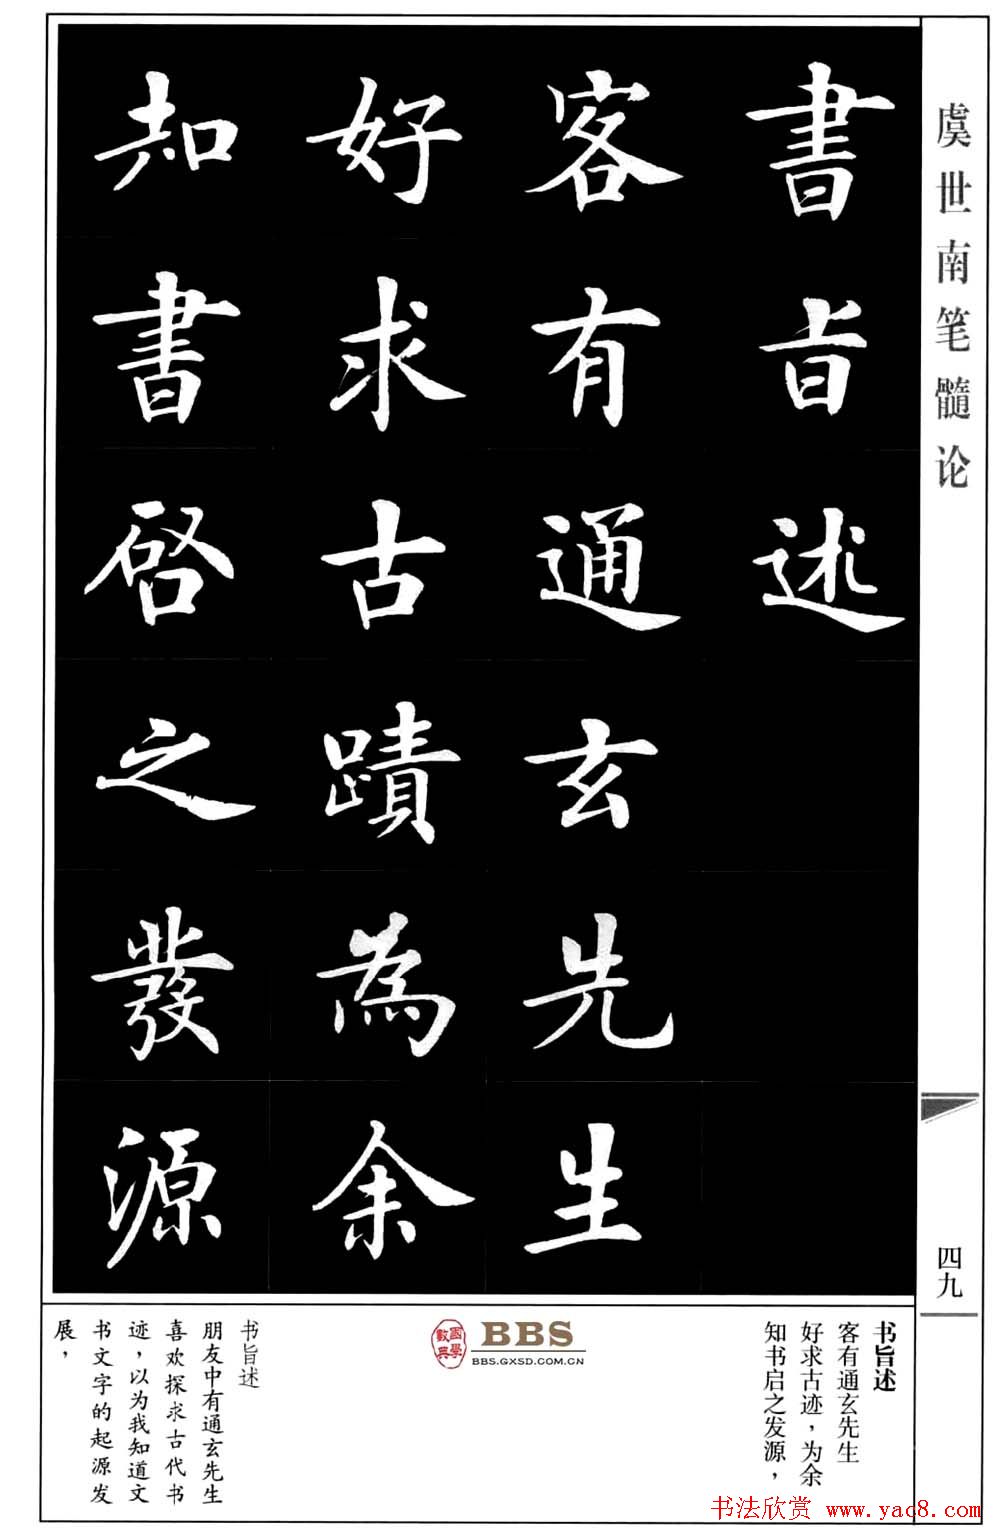 虞世南笔髓论
書旨述
客有通玄先生
好求古蹟為余
知書啓之發源
四九
书旨述
客有通玄先生
好求古迹，为余
知书启之发源，
國學數典
BBS
BBS.GXSD.COM.CN
书旨述
朋友中有通玄先生
喜欢探求古代书
迹，以为我知道文
书文字的起源发
展，
书法欣赏 www.yac8.com